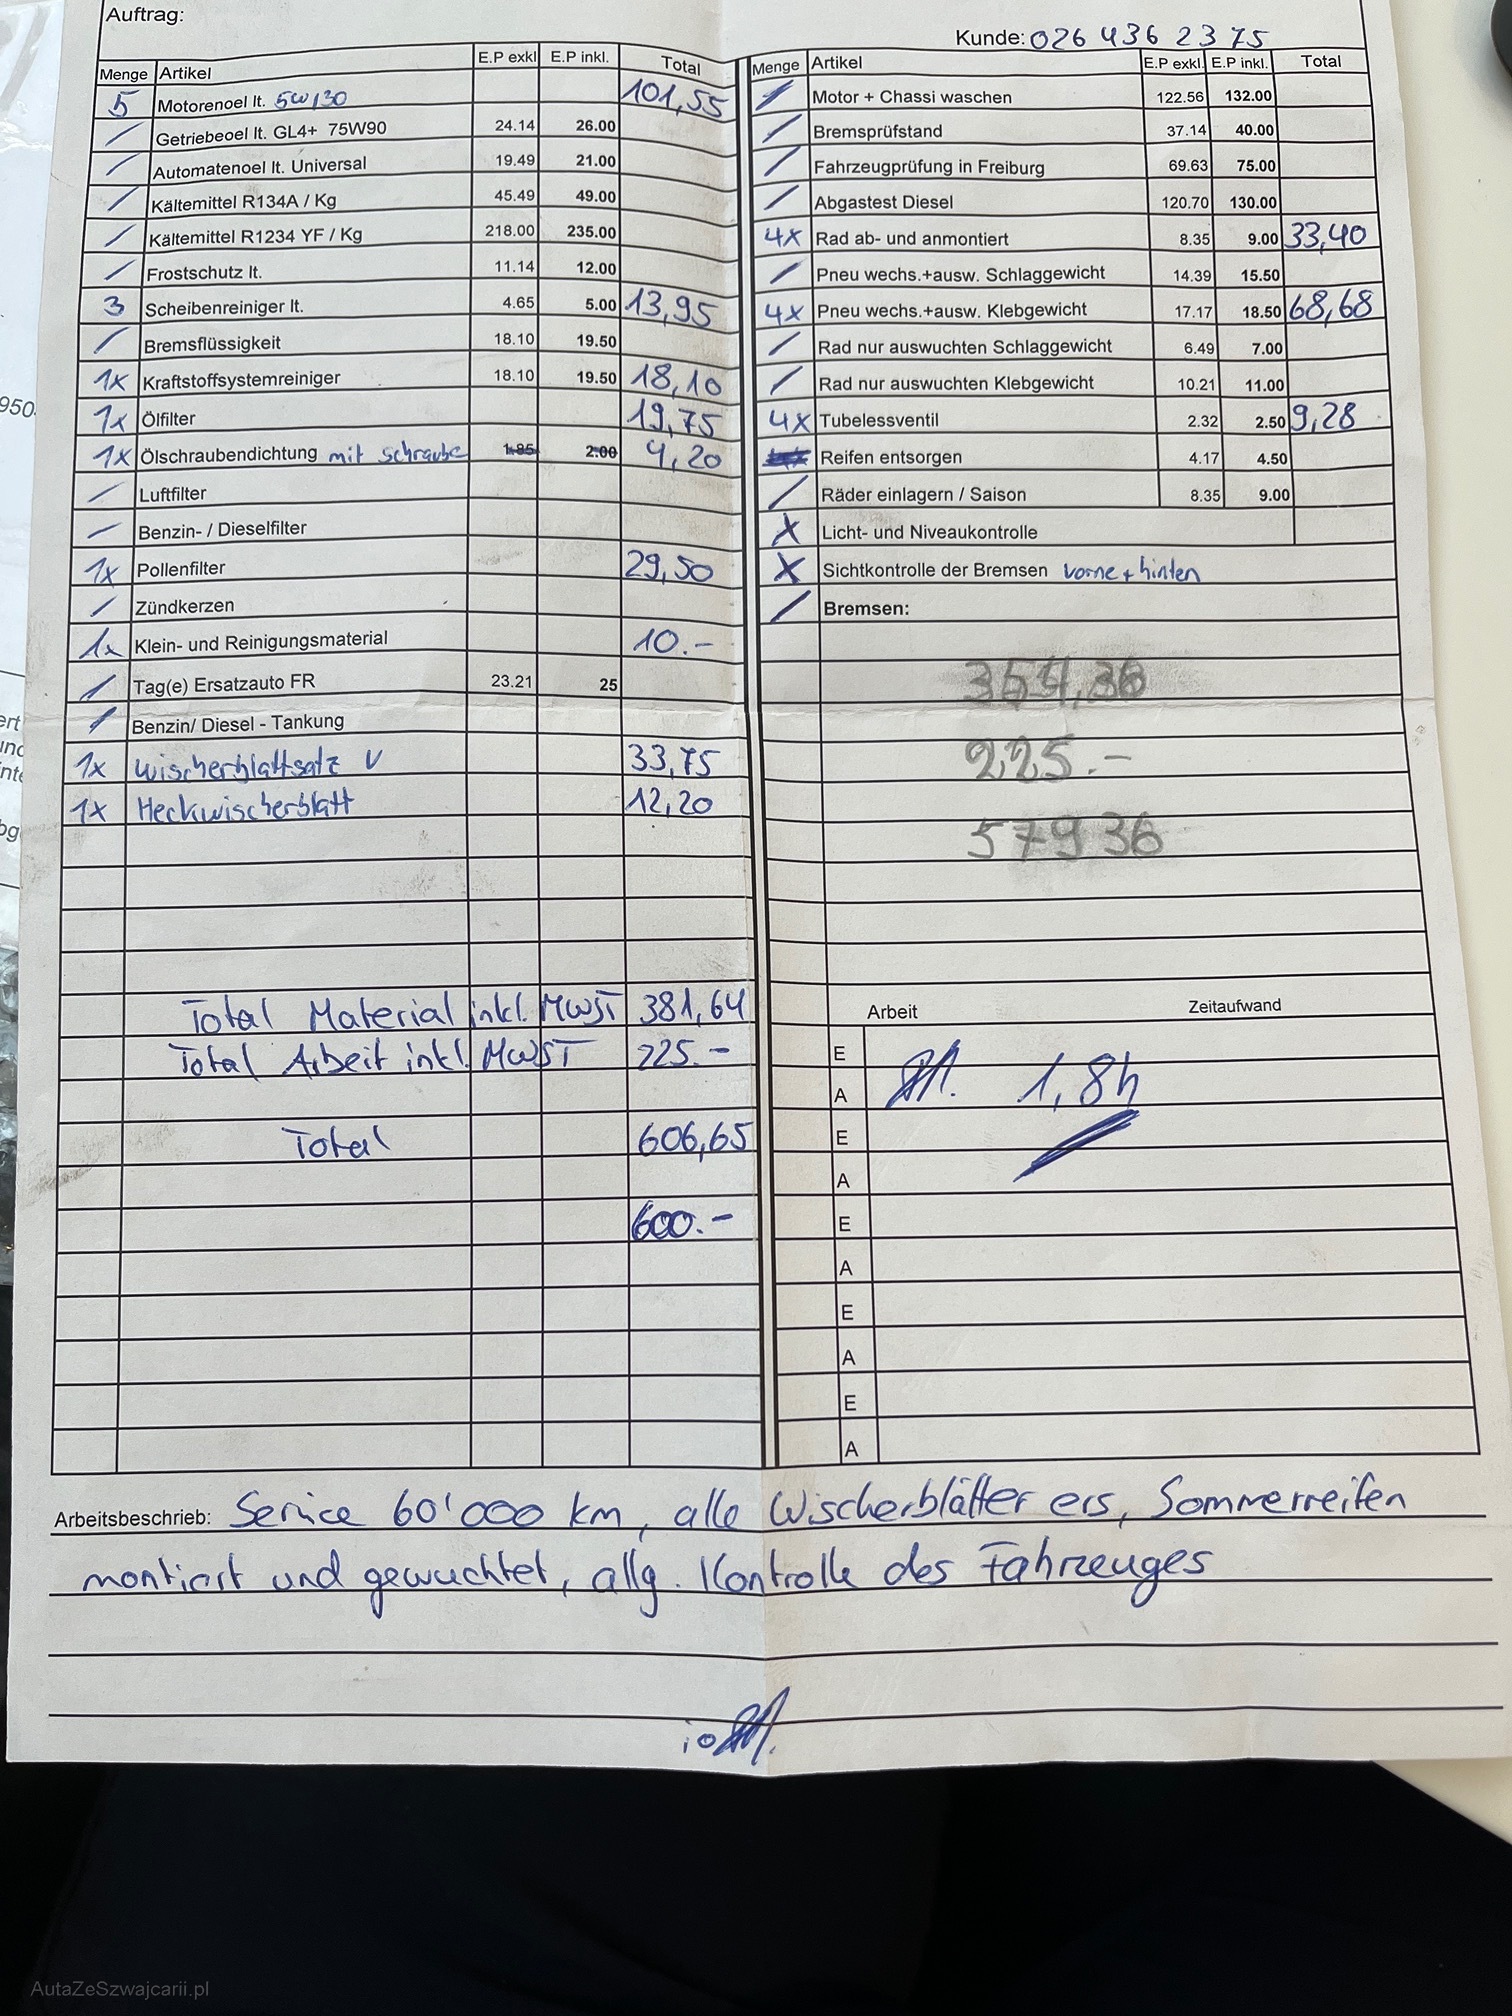 Auftrag:
Kunde: 026 436 23 75
Menge Artikel E.P exkl E.P inkl. Total
5 Motorenoel lt. 5W/30 101,55
/ Getriebeoel lt. GL4+ 75W90 24.14 26.00
/ Automatenoel lt. Universal 19.49 21.00
/ Kältemittel R134A / Kg 45.49 49.00
/ Kältemittel R1234 YF / Kg 218.00 235.00
/ Frostschutz lt. 11.14 12.00
3 Scheibenreiniger lt. 4.65 5.00 13,95
/ Bremsflüssigkeit 18.10 19.50
1x Kraftstoffsystemreiniger 18.10 19.50 18,10
1x Ölfilter 19,75
1x Ölschraubendichtung mit schraube 1.85 2.00 4,20
/ Luftfilter
/ Benzin- / Dieselfilter
1x Pollenfilter 29,50
/ Zündkerzen
1x Klein- und Reinigungsmaterial 10.-
/ Tag(e) Ersatzauto FR 23.21 25
/ Benzin/ Diesel - Tankung
1x Wischerblattsatz V 33,75
1x Heckwischerblatt 12,20
Total Material inkl. MWST 381,64
Total Arbeit inkl. MWST 225.-
Total 606,65
600.-
Menge Artikel E.P exkl. E.P inkl. Total
/ Motor + Chassi waschen 122.56 132.00
/ Bremsprüfstand 37.14 40.00
/ Fahrzeugprüfung in Freiburg 69.63 75.00
/ Abgastest Diesel 120.70 130.00
4x Rad ab- und anmontiert 8.35 9.00 33,40
/ Pneu wechs.+ausw. Schlaggewicht 14.39 15.50
4x Pneu wechs.+ausw. Klebgewicht 17.17 18.50 68,68
/ Rad nur auswuchten Schlaggewicht 6.49 7.00
/ Rad nur auswuchten Klebgewicht 10.21 11.00
4x Tubelessventil 2.32 2.50 9,28
Reifen entsorgen 4.17 4.50
/ Räder einlagern / Saison 8.35 9.00
X Licht- und Niveaukontrolle
X Sichtkontrolle der Bremsen vorne + hinten
/ Bremsen:
354,36
225.-
579 36
Arbeit Zeitaufwand
E
A 1,8h
E
A
E
A
E
A
E
A
Arbeitsbeschrieb: Service 60'000 km, alle Wischerblätter ers, Sommerreifen
montiert und gewuchtet, allg. Kontrolle des Fahrzeuges
io
950
ert
und
AutaZeSzwajcarii.pl